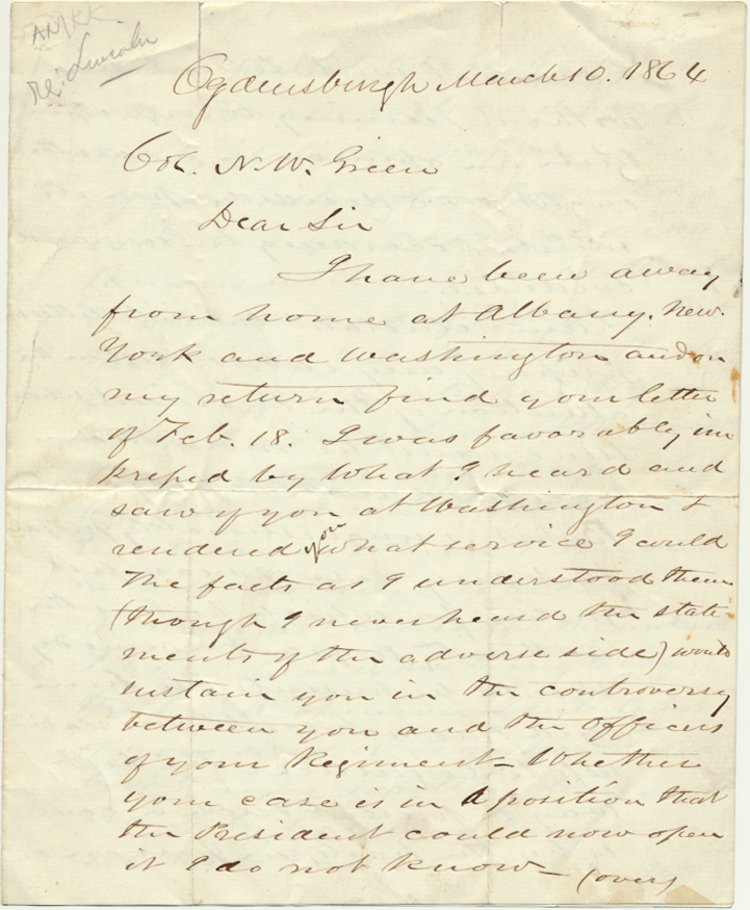 re: Lincoln
Ogdensburgh March 10. 1864
Col. N. W. Green
Dear Sir
I have been away
from home at Albany. New.
York and Washington and on
my return find your letter
of Feb. 18. I was favorably im
pressed by what I heard and
saw of you at Washington &
rendered you what service I could
The facts as I understood them
(though I never heard the state
ments of the adverse side) would
sustain you in the controversy
between you and the officers
of your Regiment – Whether
your case is in a position that
the President could now open
it I do not know – (over)